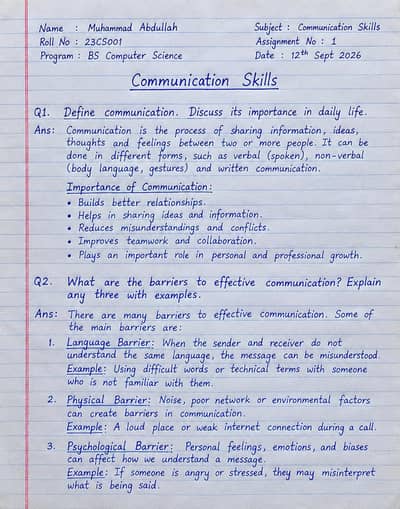 Name : Muhammad Abdullah
Subject : Communication Skills
Roll No : 23CS001
Assignment No : 1
Program : BS Computer Science
Date : 12th Sept 2026
Communication Skills
Q1. Define communication. Discuss its importance in daily life.
Ans: Communication is the process of sharing information, ideas,
thoughts and feelings between two or more people. It can be
done in different forms, such as verbal (spoken), non-verbal
(body language, gestures) and written communication.
Importance of Communication:
• Builds better relationships.
• Helps in sharing ideas and information.
• Reduces misunderstandings and conflicts.
• Improves teamwork and collaboration.
• Plays an important role in personal and professional growth.
Q2. What are the barriers to effective communication? Explain
any three with examples.
Ans: There are many barriers to effective communication. Some of
the main barriers are:
1. Language Barrier: When the sender and receiver do not
understand the same language, the message can be misunderstood.
Example: Using difficult words or technical terms with someone
who is not familiar with them.
2. Physical Barrier: Noise, poor network or environmental factors
can create barriers in communication.
Example: A loud place or weak internet connection during a call.
3. Psychological Barrier: Personal feelings, emotions, and biases
can affect how we understand a message.
Example: If someone is angry or stressed, they may misinterpret
what is being said.